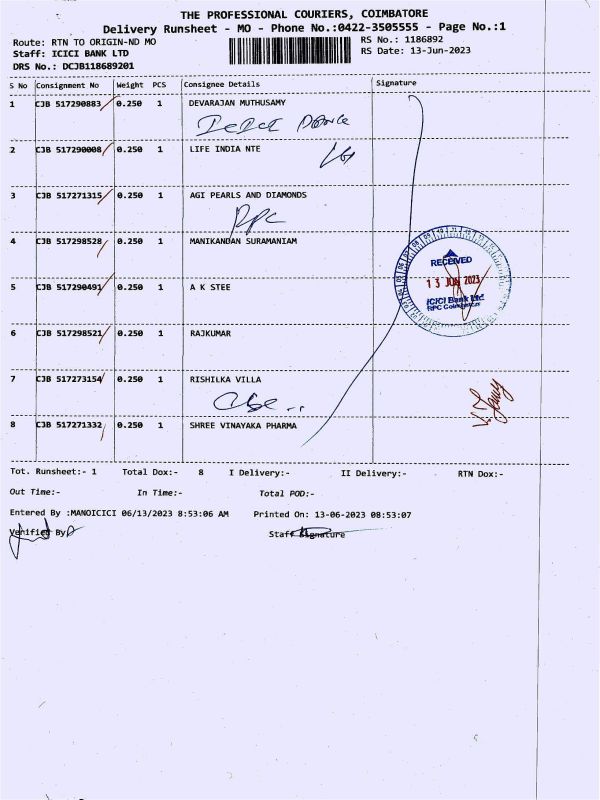 THE PROFESSIONAL COURIERS, COIMBATORE
Delivery Runsheet - MO - Phone No.:0422-3505555 - Page No.:1
Route: RTN TO ORIGIN-ND MO
RS No.: 1186892
Staff: ICICI BANK LTD
RS Date: 13-Jun-2023
DRS No.: DCJB118689201
S No Consignment No Weight PCS Consignee Details Signature
1 CJB 517290883 0.250 1 DEVARAJAN MUTHUSAMY
ICICI
2 CJB 517290008 0.250 1 LIFE INDIA NTE
3 CJB 517271315 0.250 1 AGI PEARLS AND DIAMONDS
RPC
4 CJB 517298528 0.250 1 MANIKANDAN SURAMANIAM
RECEIVED
13 JUN 2023
ICICI Bank Ltd
RPC Coimbatore
5 CJB 517290491 0.250 1 A K STEE
6 CJB 517298521 0.250 1 RAJKUMAR
7 CJB 517273154 0.250 1 RISHILKA VILLA
Cbe..
8 CJB 517271332 0.250 1 SHREE VINAYAKA PHARMA
Tot. Runsheet:- 1 Total Dox:- 8 I Delivery:- II Delivery:- RTN Dox:-
Out Time:- In Time:- Total POD:-
Entered By :MANOICICI 06/13/2023 8:53:06 AM Printed On: 13-06-2023 08:53:07
Verified By
Staff Signature